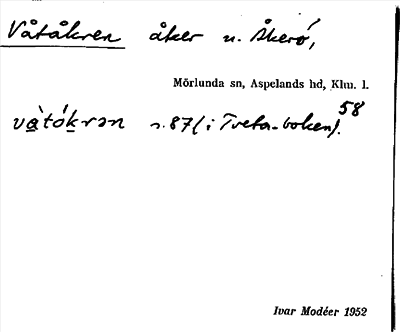 Våtåkren åker u. Åkerö,
Mörlunda sn, Aspelands hd, Klm. l.
vàtókrən s. 87 (i Tveta-boken). 58
Ivar Modéer 1952